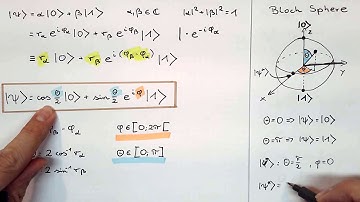 |ψ⟩ = α|0⟩ + β|1⟩   α,β ∈ ℂ   |α|²+|β|²=1
= r_α e^{iφ_α}|0⟩ + r_β e^{iφ_β}|1⟩   | · e^{-iφ_α}
≡ r_α|0⟩ + r_β e^{i(φ_β-φ_α)}|1⟩
|ψ⟩ = cos θ/2 |0⟩ + sin θ/2 e^{iφ} |1⟩
φ_β - φ_α   φ ∈ [0;2π[
= 2 cos⁻¹ r_α   θ ∈ [0;π]
2 sin⁻¹ r_β
Bloch Sphere
|0⟩
|ψ⟩
θ
φ
x
y
|1⟩
θ=0 ⇒ |ψ⟩=|0⟩
θ=π ⇒ |ψ⟩=|1⟩
: θ=π/2 , φ=0
=